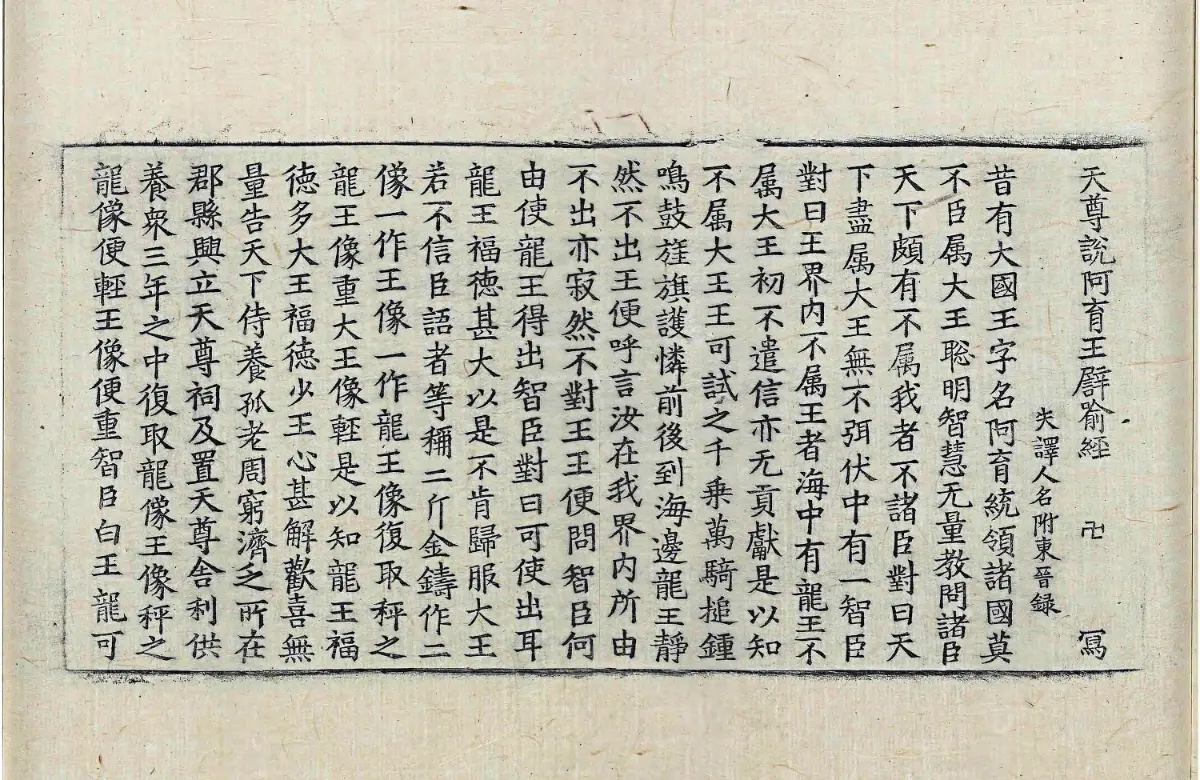 天尊說阿育王譬喻經 卍 寫
失譯人名附東晉錄
昔有大國王字名阿育統領諸國莫
不臣属大王聡明智慧无量教問諸臣
天下頗有不属我者不諸臣對曰天
下盡属大王無不弭伏中有一智臣
對曰王界内不属王者海中有龍王不
属大王初不遣信亦无貢獻是以知
不属大王王可試之千乗萬騎搥鍾
鳴鼓旌旗護憐前後到海邊龍王静
然不出王便呼言汝在我界内所由
不出亦寂然不對王王便問智臣何
由使龍王得出智臣對曰可使出耳
龍王福徳甚大以是不肯歸服大王
若不信臣語者等稱二斤金鑄作二
像一作王像一作龍王像復取秤之
龍王像重大王像輕是以知龍王福
徳多大王福徳少王心甚解歡喜無
量告天下侍養孤老周窮濟乏所在
郡縣興立天尊祠及置天尊舎利供
養衆三年之中復取龍像王像秤之
龍像便輕王像便重智臣白王龍可